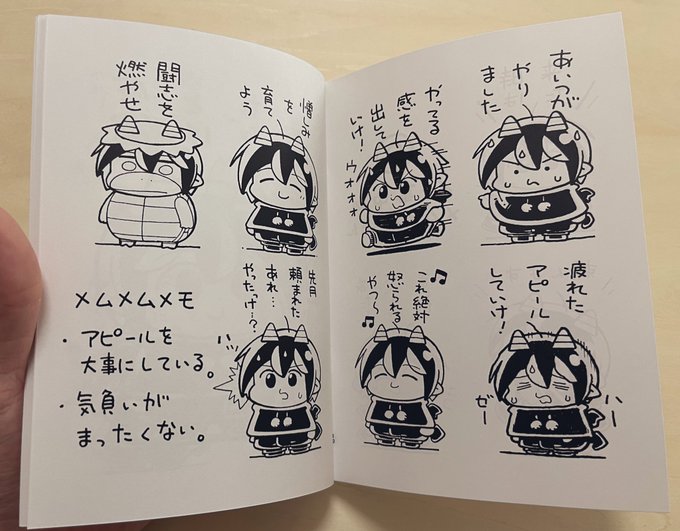 あいつが
やり
ました
やってる
感を
出して
いけ！
ウオオオオ
疲れた
アピール
していけ！
ハー
ゼー
これ絶対
怒られる
やつ〜
憎しみ
を
育て
よう
闘志を
燃やせ
先月
頼まれた
あれ…
やったっけ…？
ハッ
メムメムメモ
・アピールを
大事にしている。
・気負いが
まったくない。